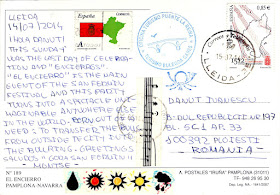 LLEIDA
14/07/2014
¡HOLA DANUT!
THIS SUNDAY
WAS THE LAST DAY OF CELEBRA-
TION AND "ENCIERROS".
"EL ENCIERRO" IS THE MAIN
EVENT OF THE SAN FERMIN
FESTIVAL AND THIS PARTY
TURNS INTO A SPECTACLE UNI-
MAGINABLE ANYWHERE ELSE
IN THE WORLD. BORN OUT OF
NEED TO TRANSFER THE BULLS
FROM OUTSIDE THE CITY TO
THE BULLRING. GREETINGS
SALUDOS "GORA SAN FERMIN"!
MONTSE
ESPAÑA
0,85 €
LLEIDA
DANUT IVANESCU
B-DUL REPUBLICII NR 197
BL. 5C1 AP. 33
100392 PLOIESTI
ROMANIA
Nº 189
EL ENCIERRO
PAMPLONA-NAVARRA
A. POSTALES "IRUÑA" PAMPLONA (31015)
Tf. 948 26 95 30